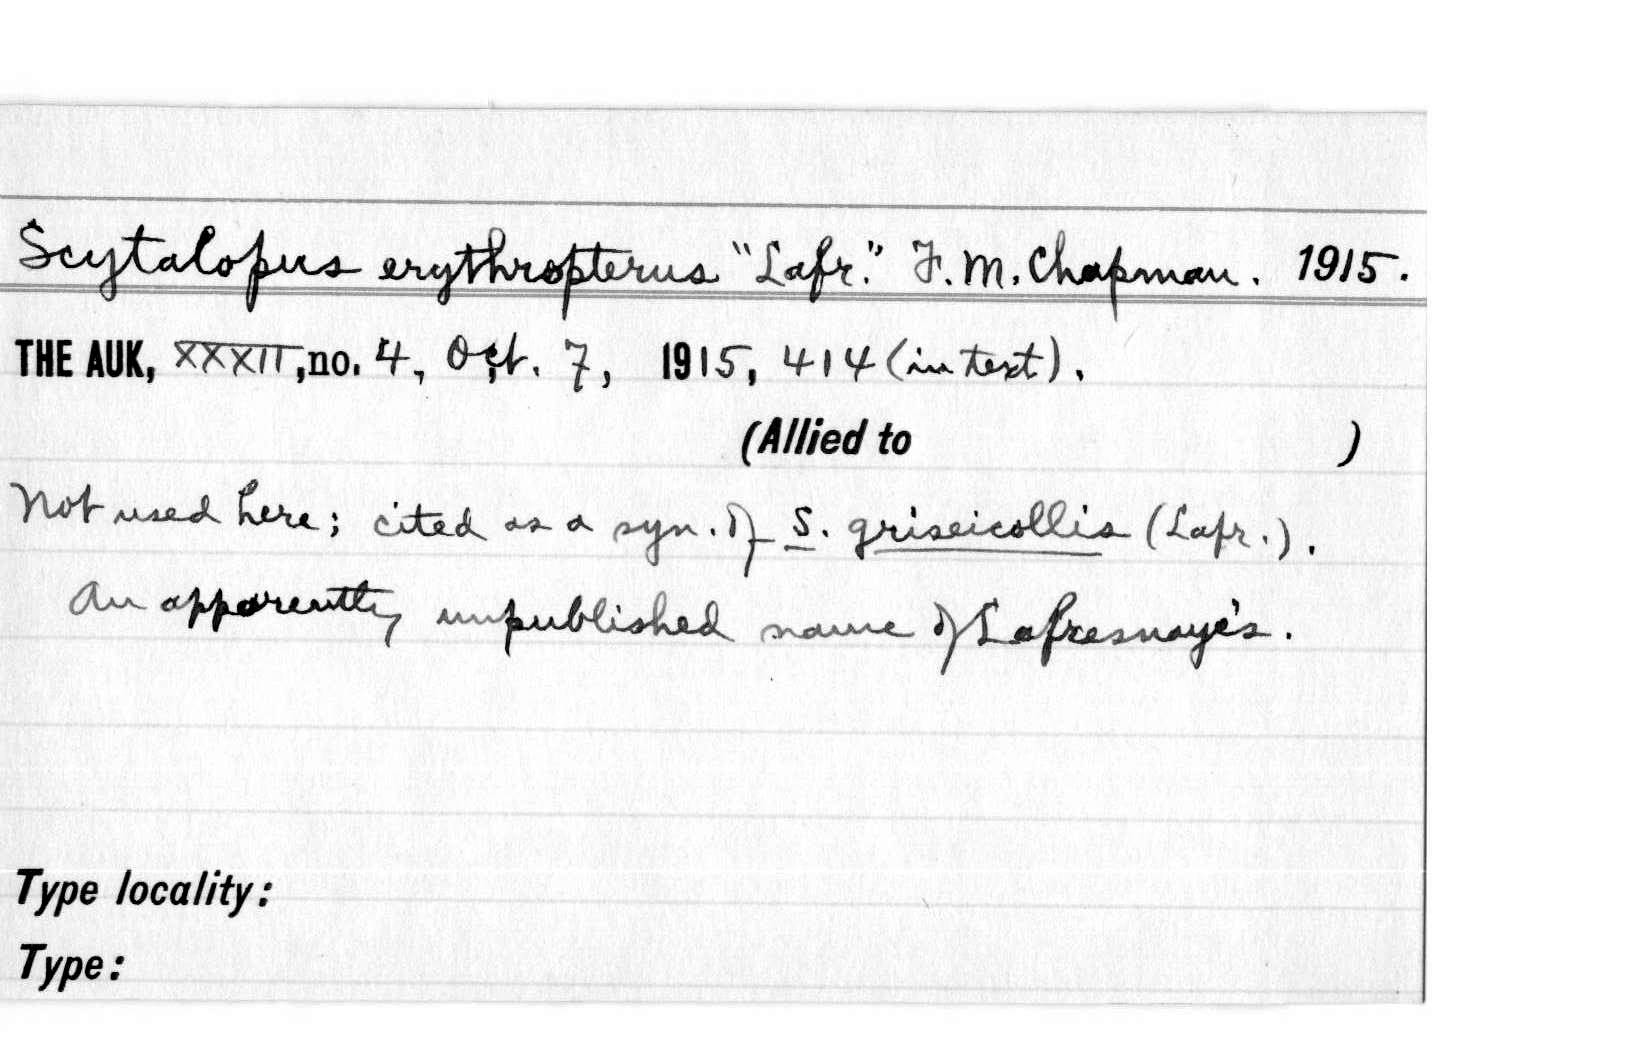 Scytalopus erythropterus "Lafr." F. M. Chapman. 1915.
THE AUK, XXXII, no. 4, Oct. 7, 1915, 414 (in text).
(Allied to )
Not used here; cited as a syn. of S. griseicollis (Lafr.).
An apparently unpublished name of Lafresnaye's.
Type locality:
Type: